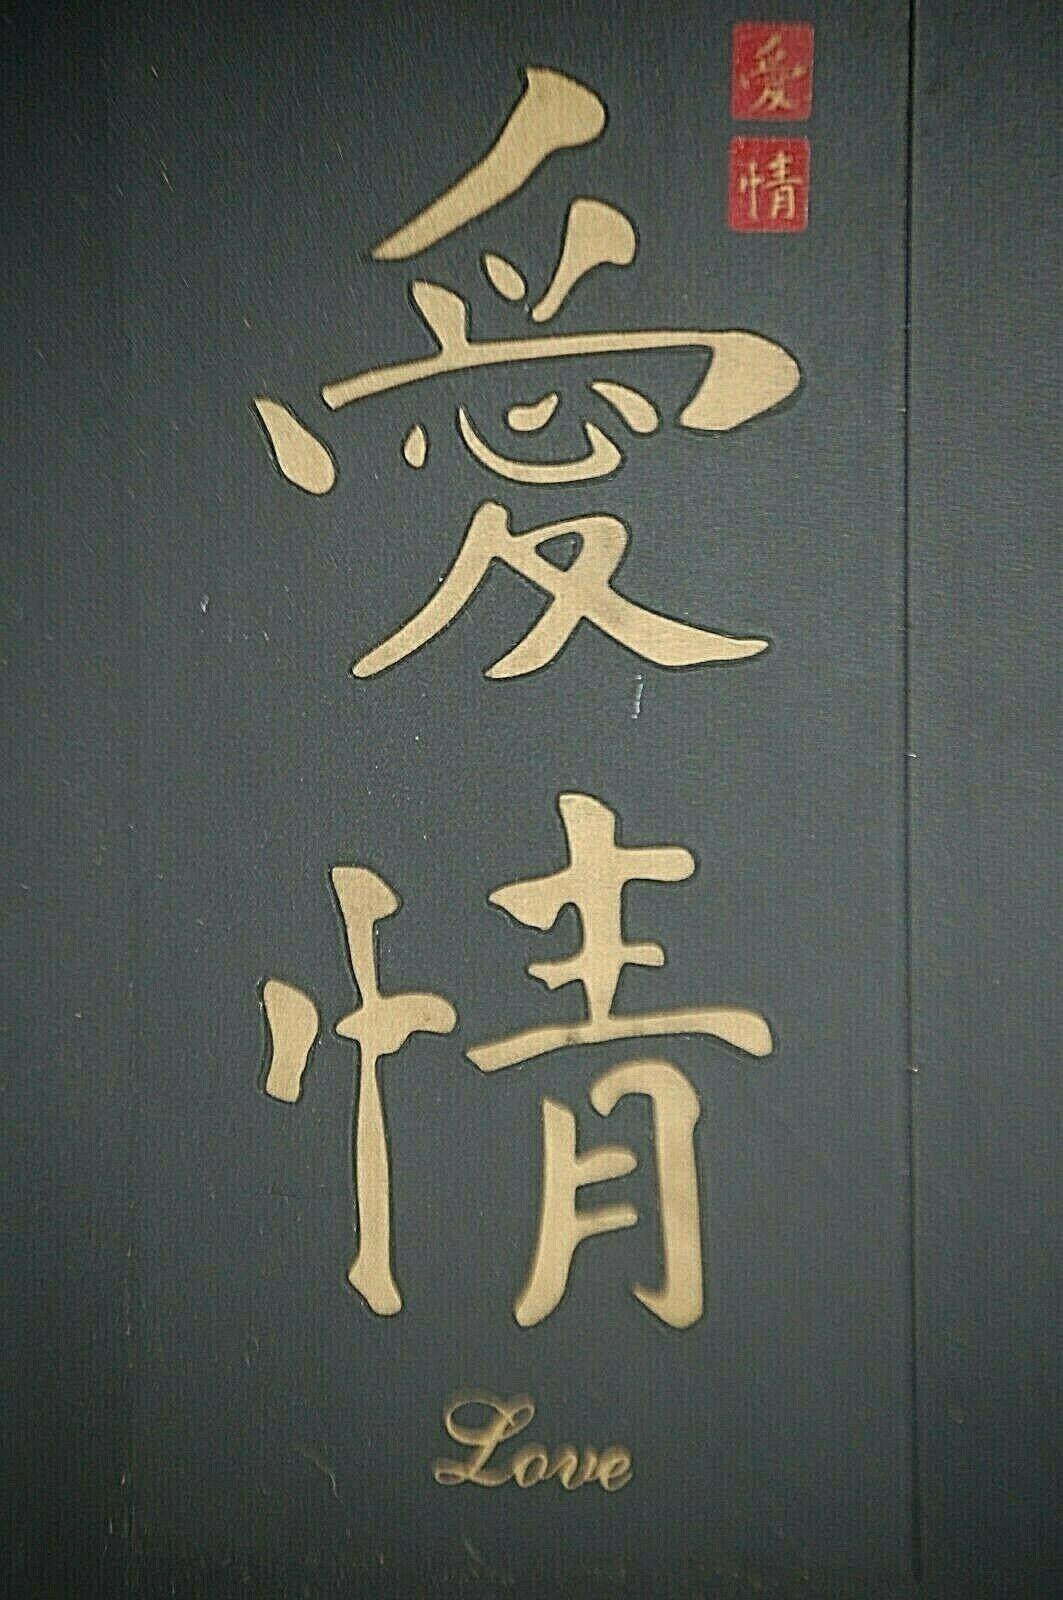 愛情
愛情
Love